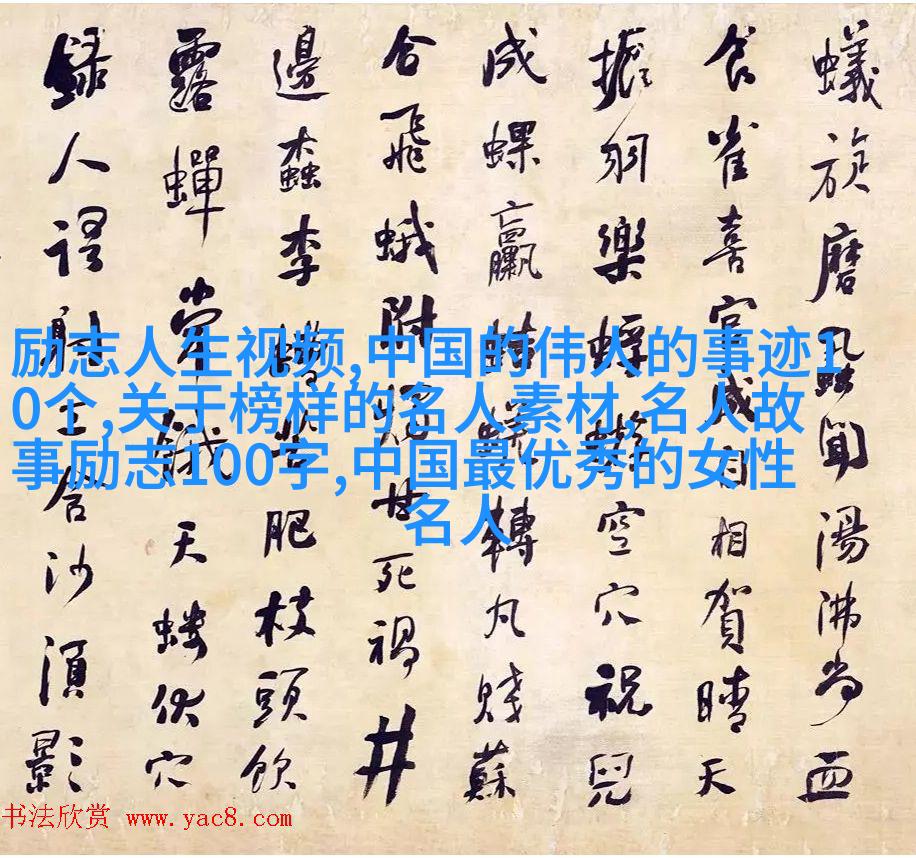 蟻旋磨蝨聞湯沸尚血
食雀喜宮成自相賀晴天
振羽樂蜉蝣空穴祝兒
成蜾蠃蛣蜣轉丸賤蘇
合飛蛾附燭甘死禍井
邊蠹李螬苦肥枝頭飲
露蟬常餓天螻伏穴
錄人語射工含沙須影
励志人生视频,中国的伟人的事迹1
0个,关于榜样的名人素材,名人故
事励志100字,中国最优秀的女性
名人
书法欣赏 www.yac8.com